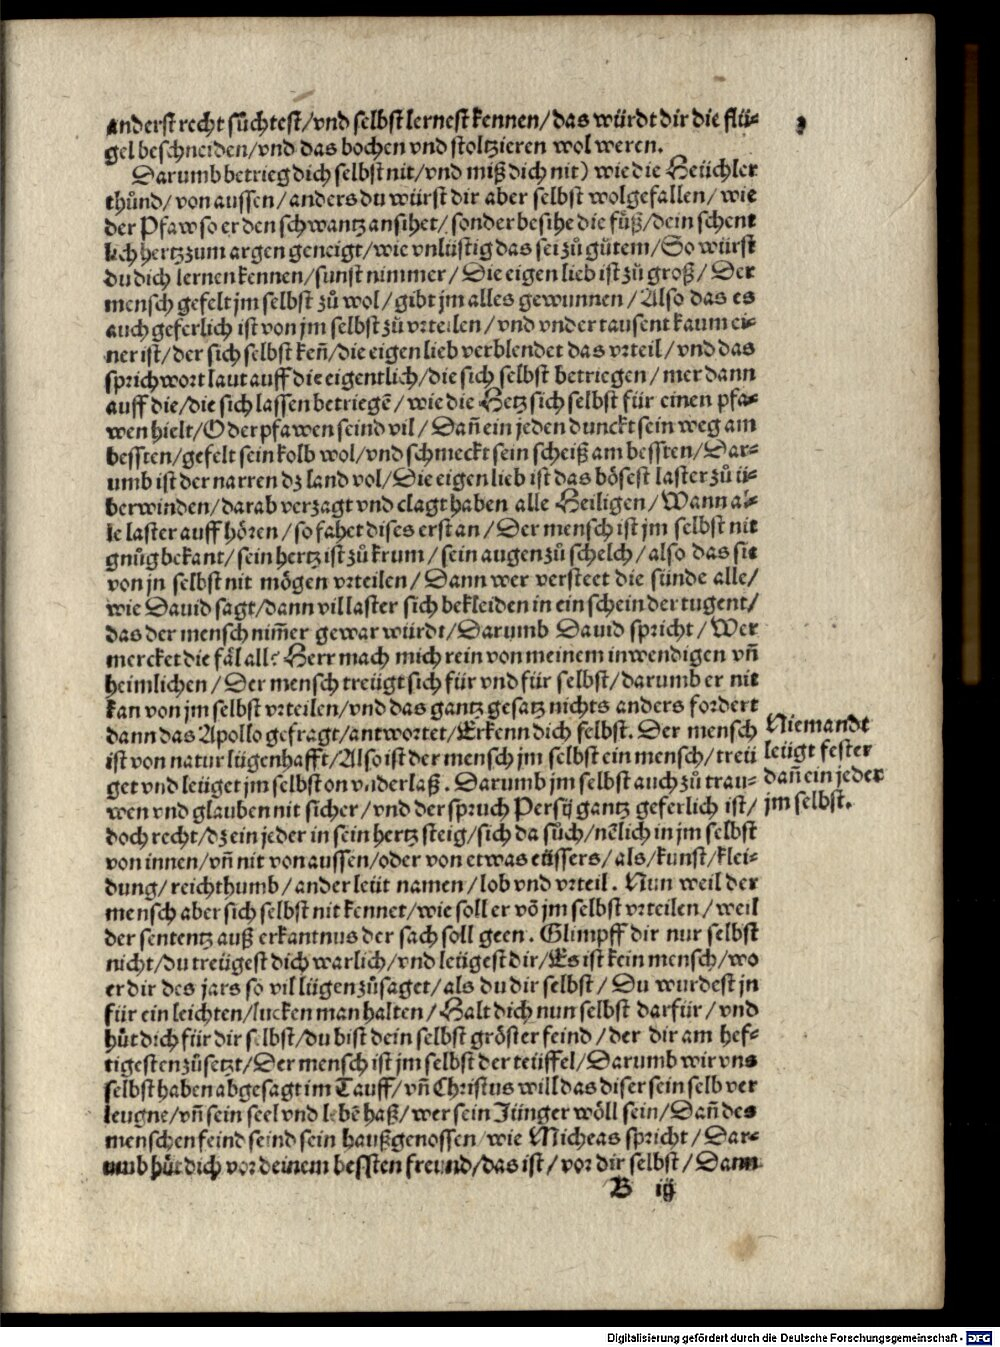 anderst recht sůchtest/vnd selbst lernest kennen/das würdt dir die flü⸗
gel beschneiden/vnd das bochen vnd stoltzieren wol weren.
Darumb betrieg dich selbst nit/vnd miß dich nit) wie die Heüchler
thůnd/von aussen/anders du würst dir aber selbst wolgefallen/wie
der Pfaw so er den schwantz ansihet/sonder besihe die fůß/dein schent
lich hertz zum argen geneigt/wie vnlüstig das sei zů gůtem/So würst
du dich lernen kennen/sunst nimmer/Die eigen lieb ist zů groß/Der
mensch gefelt jm selbst zů wol/gibt jm alles gewunnen/Also das es
auch geferlich ist von jm selbst zů vrteilen/vnd vnder tausent kaum ei⸗
ner ist/der sich selbst keñ/die eigen lieb verblendet das vrteil/vnd das
sprichwort laut auff die eigentlich/die sich selbst betriegen/mer dann
auff die/die sich lassen betriegē/wie die Hetz sich selbst für einen pfa⸗
wen hielt/O der pfawen seind vil/Dañ ein jeden dunckt sein weg am
bessten/gefelt sein kolb wol/vnd schmeckt sein scheiß am bessten/Dar⸗
umb ist der narren dz land vol/Die eigen lieb ist das bösest laster zů ü⸗
berwinden/darab verzagt vnd clagt haben alle Heiligen/Wann al⸗
le laster auff hören/so fahet dises erst an/Der mensch ist jm selbst nit
gnůg bekant/sein hertz ist zů krum/sein augen zů schelch/also das sie
von jn selbst nit mögen vrteilen/Dann wer versteet die sünde alle/
wie Dauid sagt/dann vil laster sich bekleiden in ein schein der tugent/
das der mensch nim̃er gewar würdt/Darumb Dauid spricht/Wer
mercket die fäl alle Herr mach mich rein von meinem inwendigen vñ
heimlichen/Der mensch treügt sich für vnd für selbst/darumb er nit
kan von jm selbst vrteilen/vnd das gantz gesatz nichts anders fordert
dann das Apollo gefragt/antwortet/Erkenn dich selbst. Der mensch
ist von natur lügenhafft/Also ist der mensch jm selbst ein mensch/treü
get vnd leüget jm selbst on vnderlaß. Darumb jm selbst auch zů trau⸗
wen vnd glauben nit sicher/vnd der spruch Persij gantz geferlich ist/
doch recht/dz ein jeder in sein hertz steig/sich da sůch/nēlich in jm selbst
von innen/vñ nit von aussen/oder von etwas eüssers/als/kunst/klei⸗
dung/reichthumb/ander leüt namen/lob vnd vrteil. Nun weil der
mensch aber sich selbst nit kennet/wie soll er vō jm selbst vrteilen/weil
der sententz auß erkantnus der sach soll geen. Glimpff dir nur selbst
nicht/du treügest dich warlich/vnd leügest dir/Es ist kein mensch/wo
er dir des jars so vil lügen zůsaget/als du dir selbst/Du wurdest jn
für ein leichten/lucken man halten/Halt dich nun selbst darfür/vnd
hůt dich für dir selbst/du bist dein selbst gröster feind/der dir am hef⸗
tigesten zůsetzt/Der mensch ist jm selbst der teüffel/Darumb wir vns
selbst haben abgesagt im Tauff/vñ Christus will das diser sein selb ver
leugne/vñ sein seel vnd lebē haß/wer sein Jünger wöll sein/Dañ des
menschen feind seind sein haußgenossen/wie Micheas spricht/Dar⸗
umb hůt dich vor deinem bessten freund/das ist/vor dir selbst/Dann
B iij
Niemandt
leügt fester
dañ ein jeder
jm selbst.
Digitalisierung gefördert durch die Deutsche Forschungsgemeinschaft - DFG